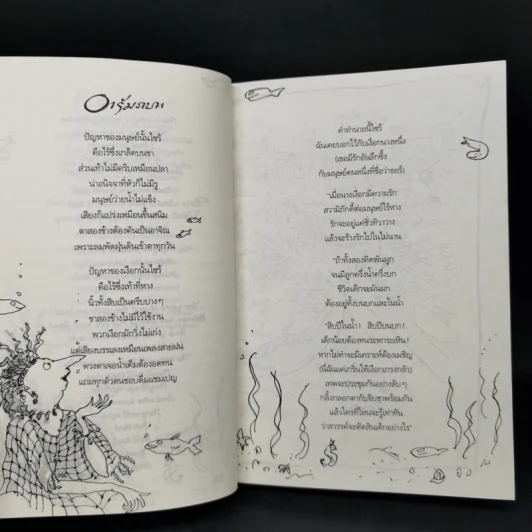 อารัมภบท
ปัญหาของมนุษย์นั้นไซร้
คือไร้ซึ่งเกล็ดบนขา
ส่วนเท้าไม่มีครีบเหมือนปลา
น่าอนิจจาที่หัวก็ไม่มีรู
มนุษย์ว่ายน้ำไม่แข็ง
เสียงก็แปร่งเหมือนขึ้นสนิม
ตาสองข้างต้องคันเป็นอาจิณ
เพราะลมพัดฝุ่นดินเข้าตาทุกวัน
ปัญหาของเงือกนั้นไซร้
คือไร้ซึ่งเท้าที่ห่าง
นิ้วทั้งสิบเป็นครีบบางๆ
ขาสองข้างไม่มีไว้ใช้งาน
พวกเงือกมักวิ่งไม่เก่ง
แต่เสียงบรรเลงเหมือนเพลงสายฝน
ดวงตาเจอน้ำเค็มต้องอดทน
แถมทุกตัวตนชอบดื่มแชมเปญ
คำทำนายนี้ไซร้
ฉันเคยบอกไว้กับเงือกนางหนึ่ง
(เธอมีรักอันลึกซึ้ง
กับมนุษย์คนหนึ่งที่ชื่อว่าชอร์)
"เมื่อนางเงือกมีความรัก
สวามิภักดิ์ต่อมนุษย์ไร้หาง
รักจะอยู่แค่ชั่วทิวาวาง
แล้วจะร้างรักไปในไม่นาน
"ถ้าทั้งสองคิดพันผูก
จนมีลูกครึ่งน้ำครึ่งบก
ชีวิตเด็กจะผันผก
ต้องอยู่ทั้งบนบกและในน้ำ
"สิบปีในน้ำ! สิบปีบนบก!
เด็กน้อยต้องทนระหกระเหิน!
หากไม่ทำจะมีเคราะห์ต้องเผชิญ
(นี่ฉันแค่เกริ่นให้เงือกเกรงกลัว)
เทพจะประชุมกันอย่างลับๆ
กลิ้งกลอกตากับจิบชาพร้อมกัน
แล้วใครที่ไหนจะรู้เท่าทัน
ว่าสวรรค์จะตัดสินเด็กอย่างไร"